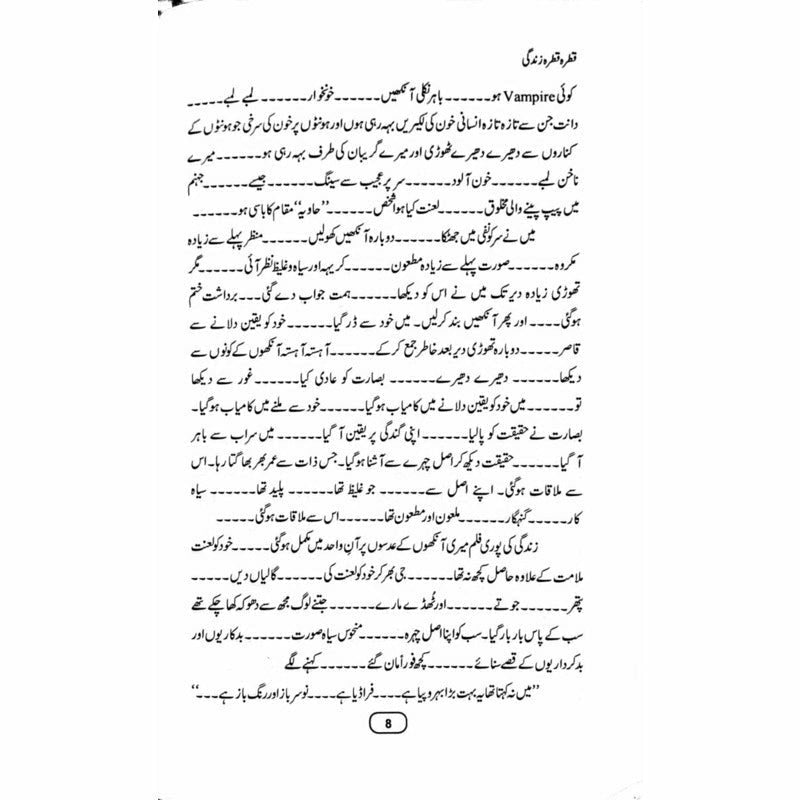 قطرہ قطرہ زندگی
کوئی Vampire ہو۔۔۔۔۔۔ باہر نکلی آنکھیں۔۔۔۔۔۔خونخوار۔۔۔۔۔۔ لمبے لمبے۔۔۔۔۔
دانت جن سے تازہ تازہ انسانی خون کی لکیریں بہہ رہی ہوں اور ہونٹوں پر خون کی سرخی جو ہونٹوں کے
کناروں سے دھیرے دھیرے ٹھوڑی اور میرے گریبان کی طرف بہہ رہی ہو۔۔۔۔۔۔میرے
ناخن لمبے۔۔۔۔۔۔خون آلود۔۔۔۔۔۔سر پر عجیب سے سینگ۔۔۔۔۔۔جیسے۔۔۔۔۔جہنم
میں پیپ پینے والی مخلوق۔۔۔۔۔۔لعنت کیا ہوا شخص۔۔۔۔۔۔’’حاویہ‘‘ مقام کا باسی ہو۔۔۔۔۔۔
میں نے سر کو نفی میں جھٹکا۔۔۔۔۔۔دوبارہ آنکھیں کھولیں۔۔۔۔۔۔منظر پہلے سے زیادہ
مکروہ۔۔۔۔۔۔صورت پہلے سے زیادہ مطعون۔۔۔۔۔۔کریہہ اور سیاہ و غلیظ نظر آئی۔۔۔۔۔مگر
تھوڑی زیادہ دیر تک میں نے اس کو دیکھا۔۔۔۔۔۔ہمت جواب دے گئی۔۔۔برداشت ختم
ہوگئی۔۔۔۔ اور پھر آنکھیں بند کرلیں۔ میں خود سے ڈر گیا۔۔۔۔۔۔خود کو یقین دلانے سے
قاصر۔۔۔۔۔دوبارہ تھوڑی دیر بعد خاطر جمع کرکے۔۔۔۔۔۔آہستہ آہستہ آنکھوں کے کونوں سے
دیکھا۔۔۔۔۔۔ دھیرے دھیرے۔۔۔۔۔۔ بصارت کو عادی کیا۔۔۔۔۔۔غور سے دیکھا
تو۔۔۔۔۔۔میں خود کو یقین دلانے میں کامیاب ہوگیا۔۔۔۔۔۔خود سے ملنے میں کامیاب ہوگیا۔
بصارت نے حقیقت کو پالیا۔۔۔۔۔۔اپنی گندگی پر یقین آگیا۔۔۔۔۔۔ میں سراب سے باہر
آگیا۔۔۔۔۔۔حقیقت دیکھ کر اصل چہرے سے آشنا ہوگیا۔ جس ذات سے عمر بھر بھاگتا رہا۔ اس
سے ملاقات ہوگئی۔ اپنے اصل سے۔۔۔۔۔۔ جو غلیظ تھا۔۔۔۔۔۔ پلید تھا۔۔۔۔۔۔ سیاہ
کار۔۔۔۔۔گنہگار۔۔۔۔۔۔ملعون اور مطعون تھا۔۔۔۔۔۔اس سے ملاقات ہوگئی۔۔۔۔۔
زندگی کی پوری فلم میری آنکھوں کے عدسوں پر آنِ واحد میں مکمل ہوگئی۔۔۔۔۔خود کو لعنت
ملامت کے علاوہ حاصل کچھ نہ تھا۔۔۔۔۔۔جی بھر کر خود کو لعنت کی۔۔۔۔۔۔گالیاں دیں۔۔۔۔۔
پتھر۔۔۔۔۔۔جوتے۔۔۔۔۔۔اور ٹھڈے مارے۔۔۔۔۔۔جتنے لوگ مجھ سے دھوکہ کھا چکے تھے
سب کے پاس بار بار گیا۔ سب کو اپنا اصل چہرہ۔۔۔۔۔۔منحوس سیاہ صورت۔۔۔۔۔۔بدکاریوں اور
بدکرداریوں کے قصے سنائے۔۔۔۔۔۔کچھ فوراً مان گئے۔۔۔۔۔۔کہنے لگے
’’میں نہ کہتا تھا یہ بہت بڑا بہروپیا ہے۔۔۔۔فراڈیا ہے۔۔۔۔نوسرباز اور رنگ باز ہے۔۔۔‘‘
8